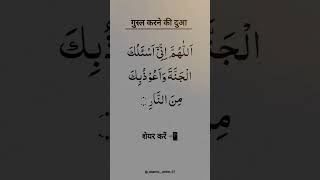 गुस्ल करने की दुआ
اَللّٰهُمَّ اِنِّيْٓ اَسْئَلُكَ
الْجَنَّةَ وَاَعُوْذُبِكَ
مِنَ النَّارِ
शेयर करें